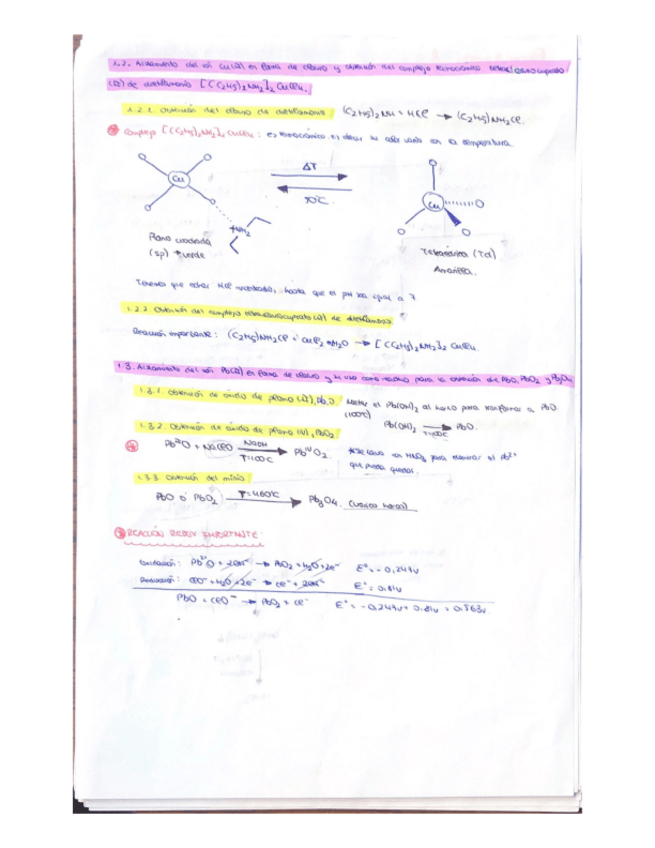 1.2. Aislamiento del ión Cu(II) en forma de cloruro y obtención del complejo termocrómico tetraclorocuprato
(II) de dietilamonio [(C2H5)2NH2]2CuCl4.
1.2.1. Obtención del cloruro de dietilamonio (C2H5)2NH + HCl → (C2H5)NH2Cl.
Complejo [(C2H5)2NH2]2CuCl4: es termocrómico es decir su color varía con la temperatura.
Cu
ΔT
70ºC.
Cu
NH2
Plano cuadrada
(sp) verde
Tetraédrica (Td)
Amarilla.
Tenemos que echar HCl hasta que el pH sea igual a 7
1.2.2. Obtención del complejo tetraclorocuprato (II) de dietilamonio
Reacción importante: (C2H5)NH2Cl + CuCl2 H2O → [(C2H5)2NH2]2CuCl4.
1.3. Aislamiento del ión Pb(II) en forma de cloruro y su uso como reactivo para la obtención de PbO, PbO2 y Pb3O4
1.3.1. Obtención de óxido de plomo (II), PbO. Meter el Pb(OH)2 al horno para transformar a PbO.
(100ºC)
Pb(OH)2 → PbO.
T=100ºC
1.3.2. Obtención de óxido de plomo (IV), PbO2
PbIIO + NaClO NaOH T=100ºC → PbIVO2.
Se lava con HNO3 para eliminar el Pb2+
que pueda quedar.
1.3.3. Obtención del minio
PbO ó PbO2 T=460ºC → Pb3O4. (varias horas)
REACCIÓN REDOX IMPORTANTE:
Oxidación: PbIIO + 2OH- → PbO2 + H2O + 2e- Eº = -0,249v
Reducción: ClO- + H2O + 2e- → Cl- + 2OH- Eº = 0.81v
PbO + ClO- → PbO2 + Cl- Eº = -0,249v + 0.81v = 0.563v